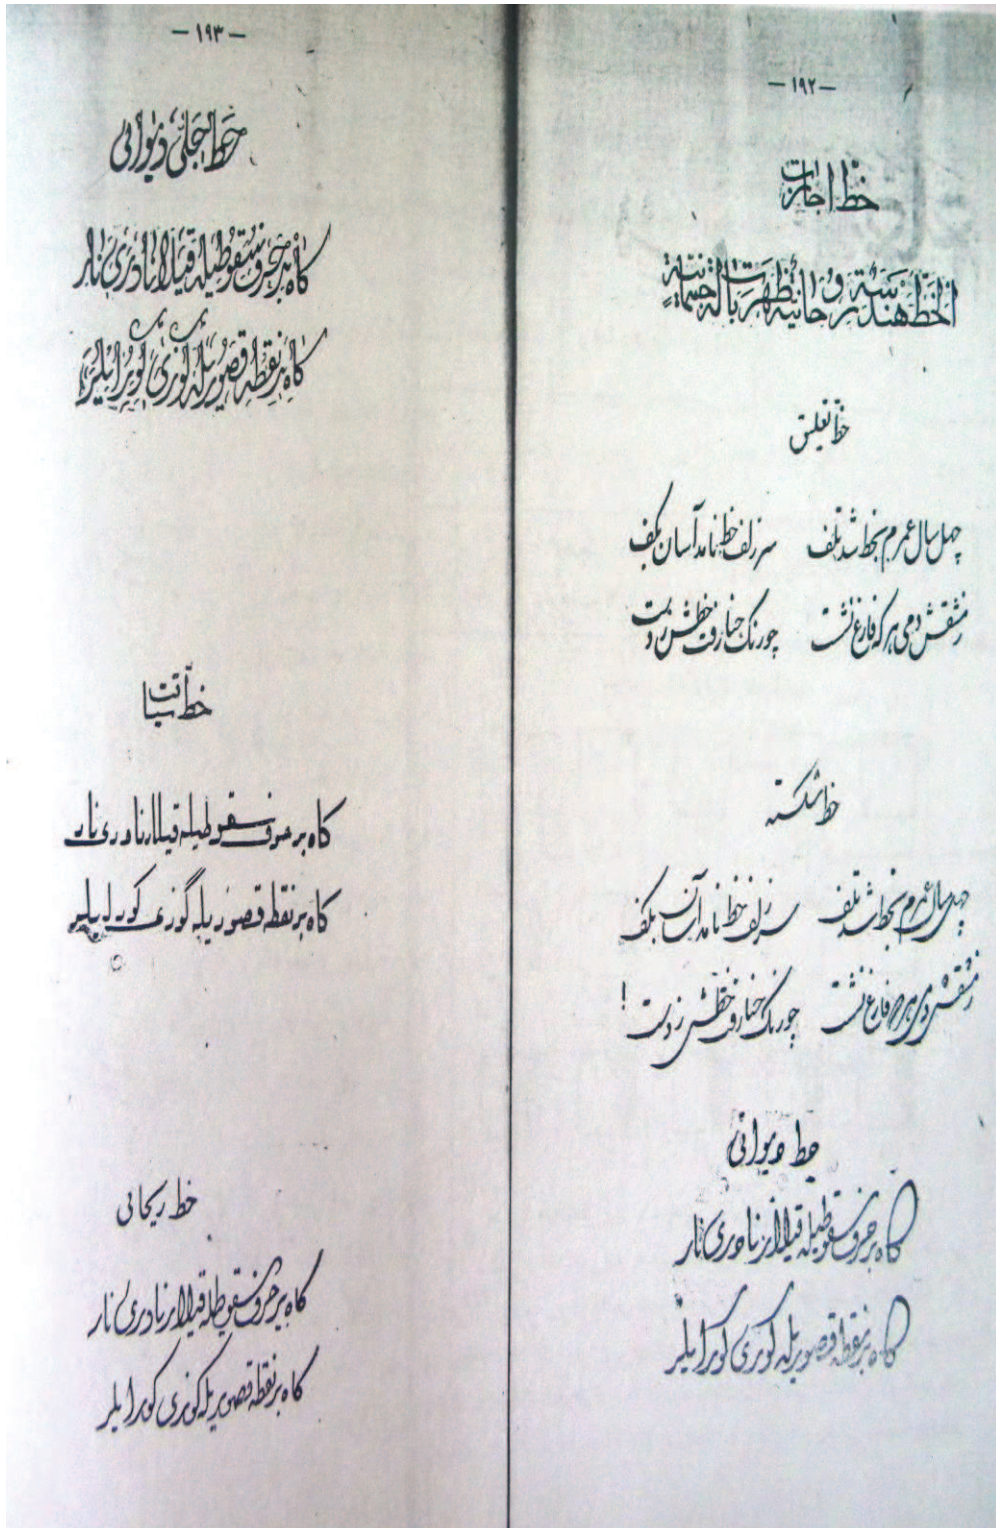 — ١٩٢ —
خط اجازت
الخط هندسة روحانية ظهرت بآلة جسمانية
خط تعليق
چهل سال عمرم بخط شد تلف سر زلف خط نامد آسان بكف
ز مشقش دمى هر كه فارغ نشست چو رنگ حنا رفت خطش ز دست
خط شكسته
چهل سال عمرم بخط شد تلف سر زلف خط نامد آسان بكف
ز مشقش دمى هر كه فارغ نشست چو رنگ حنا رفت خطش ز دست !
خط ديوانى
كاه بر حرف سقوطيله قيلار نادرى نار
كاه بر نقطه قصوريله كوزى كور ايلر
— ١٩٣ —
خط جلى ديوانى
كاه بر حرف سقوطيله قيلار نادرى نار
كاه بر نقطه قصوريله كوزى كور ايلر
خط سياقت
كاه بر حرف سقوطيله قيلار نادرى نار
كاه بر نقطه قصوريله گوزى كور ايلر
خط ريحانى
كاه بر حرف سقوطيله قيلار نادرى نار
كاه بر نقطه قصوريله كوزى كور ايلر